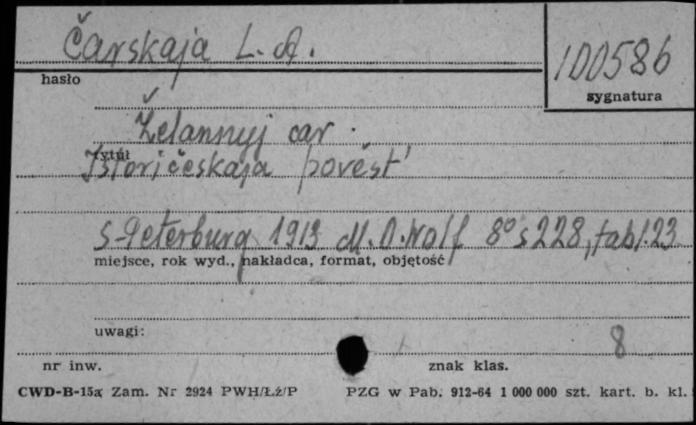 Čarskaja L. A.
hasło
100586
sygnatura
Želannyj car.
tytuł
Istoričeskaja povést'
S-Peterburg 1913 M. O. Wolf 8° s 228, tabl. 23
miejsce, rok wyd., nakładca, format, objętość
uwagi:
8
nr inw.
znak klas.
CWD-B-15a Zam. Nr 2924 PWH/Łź/P PZG w Pab. 912-64 1 000 000 szt. kart. b. kl.